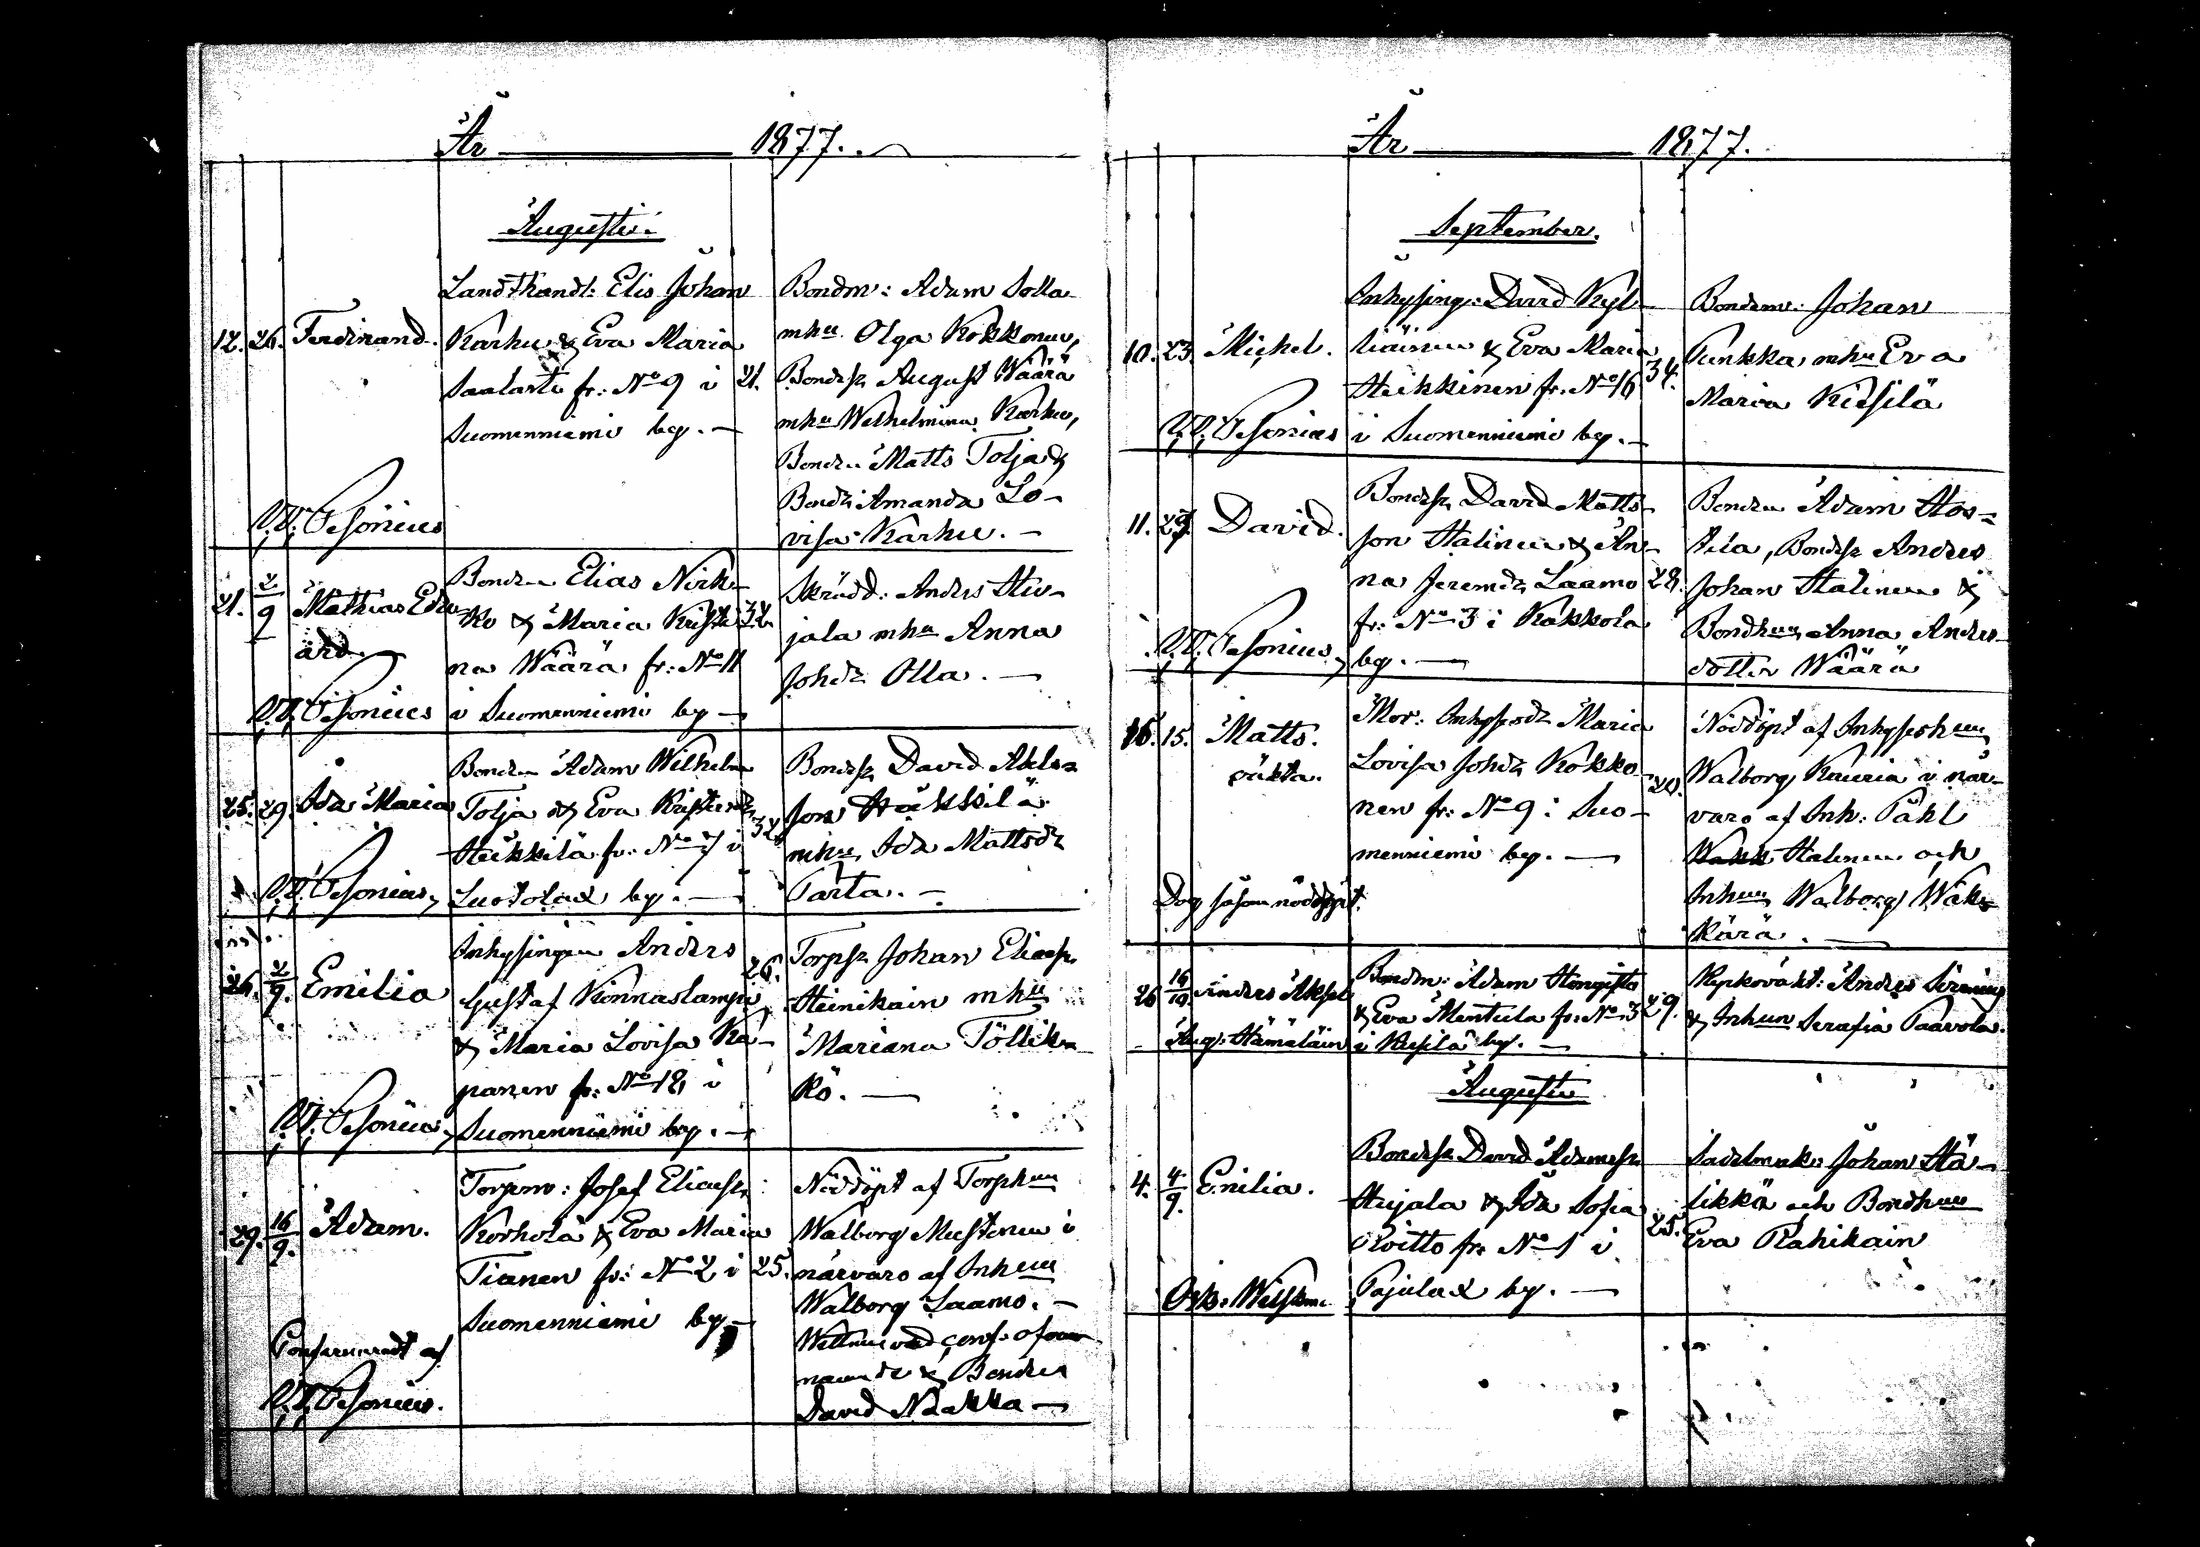 År 1877.
Augusti.
12. 26. Ferdinand.
Landthandl: Elis Johan
Karhu & Eva Maria
Saalasti fr: No 9 i
Suomenniemi by. —
21.
Bondm: Adam Solla
mhu Olga Kokkonen,
Bondesn August Wäärä
mhu Wilhelmina Karhu,
Bonden Matts Tolja &
Bondd: Amanda Lo-
visa Karhu. —
V. V. Pesonius
21. 2/9 Mathias Edv-
ärd.
Bonden Elias Nirk-
ko & Maria Kristi-
na Wäärä fr: No 11
i Suomenniemi by —
32.
Skrädd: Anders Hiv-
jala mhu Anna
Johdr Olla. —
V. V. Pesonius
25. 29. Ida Maria
Bonden Adam Wilhelm
Tolja & Eva Kristindr
Heikkilä fr: No 7 i
Luotolax by. —
32.
Bondesn David Aklex
son Häkkilä
mhu Ida Mattsdr
Parta. —
V. V. Pesonius,
26. 2/9. Emilia
Inhysingen Anders
Gustaf Kinnaslampi
& Maria Lovisa Ka-
panen fr: No 18 i
Suomenniemi by. —
26.
Torpsn Johan Eliasn
Heinikain mhu
Mariana Töllik-
kö. —
V. V. Pesonius,
29. 16/9. Adam.
Torpm: Josef Eliassn
Korhola & Eva Maria
Tianen fr: No 2 i
Suomenniemi by —
25.
Nöddöpt af Torphun
Walborg Mustonen i
närvaro af Inhun
Walborg Laamo. —
Wittnen vid conf: ofvan
nämnde & Bonden
David Naakka —
Confirmeradt af
V. V. Pesonius.
År 1877.
September.
10. 23. Michel.
Inhysing: David Kyl-
liäinen & Eva Maria
Heikkinen fr. No 16
i Suomenniemi by. —
34.
Bondem: Johan
Punkka mhu Eva
Maria Kiesilä
V. V. Pesonius
11. 29. David.
Bondesn David Matts-
son Halinen & An-
na Jeremdr Laamo
fr: No 3 i Kokkola
by. —
28.
Bonden Adam Hos-
tila, Bondesn Anders
Johan Halinen &
Bondhun Anna Anders-
dotter Wäärä
V. V. Pesonius,
16. 15. Matts.
oäkta.
Mor: Inhysesdr Maria
Lovisa Johdr Kokko-
nen fr: No 9 i Suo-
menniemi by. —
20.
Nöddöpt af Inhyseshun
Walborg Kauria i när-
varo af Inh: Påhl
Halinen och
Inhun Walborg Wäk-
kärä. —
Dog såsom nöddöpt.
26 14/10 Anders Aksel
Bondm: Adam Hongisto
& Eva Mentula fr: No 3
i Kiesilä by. —
29.
Kyrkovakt: Anders Sirenius
& Inhun Serafia Paavola.
Aug: Hämäläin
Augusti
4. 4/9. Emilia.
Bondesn David Adamsn
Hujala & Ida Sofia
Roitto fr: No 1 i
Pajulax by. —
25.
Sadelmak: Johan Hä-
likkä och Bondhun
Eva Rahikain